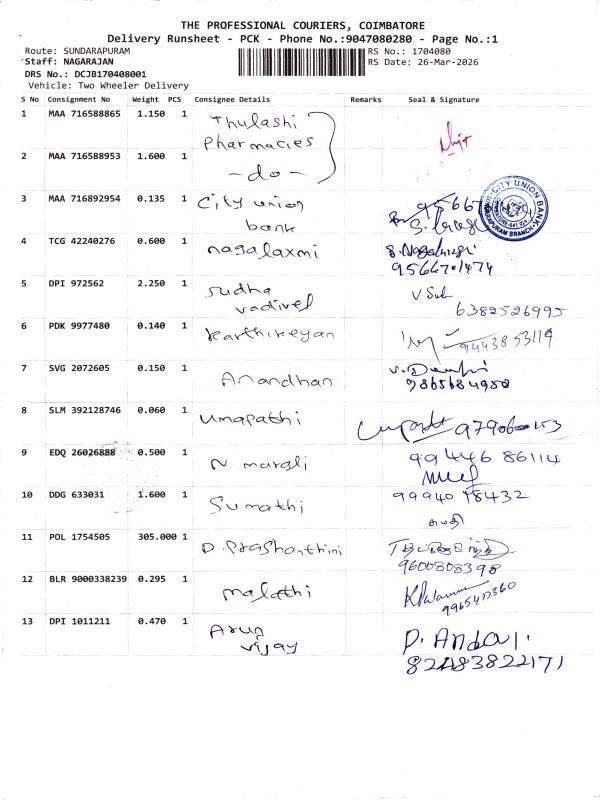 THE PROFESSIONAL COURIERS, COIMBATORE
Delivery Runsheet - PCK - Phone No.:9047080280 - Page No.:1
Route: SUNDARAPURAM
RS No.: 1704080
Staff: NAGARAJAN
RS Date: 26-Mar-2026
DRS No.: DCJB170408001
Vehicle: Two Wheeler Delivery
S No Consignment No Weight PCS Consignee Details Remarks Seal & Signature
1 MAA 716588865 1.150 1 Thulashi
Pharmacies
2 MAA 716588953 1.600 1 - do -
3 MAA 716892954 0.135 1 City union
bank
CITY UNION BANK
4 TCG 42240276 0.600 1 nagalaxmi
5 DPI 972562 2.250 1 Sudha
vadivel
6382526995
6 PDK 9977480 0.140 1 Karthikeyan
9443853119
7 SVG 2072605 0.150 1 Anandhan
8 SLM 392128746 0.060 1 Umapathi
9 EDQ 26026888 0.500 1 N. murali
99446 86114
10 DDG 633031 1.600 1 Sumathi
99940 78432
சுமதி
11 POL 1754505 305.000 1 D. Prashanthini
9600808398
12 BLR 9000338239 0.295 1 malathi
13 DPI 1011211 0.470 1 Arun
vijay
P. Andal